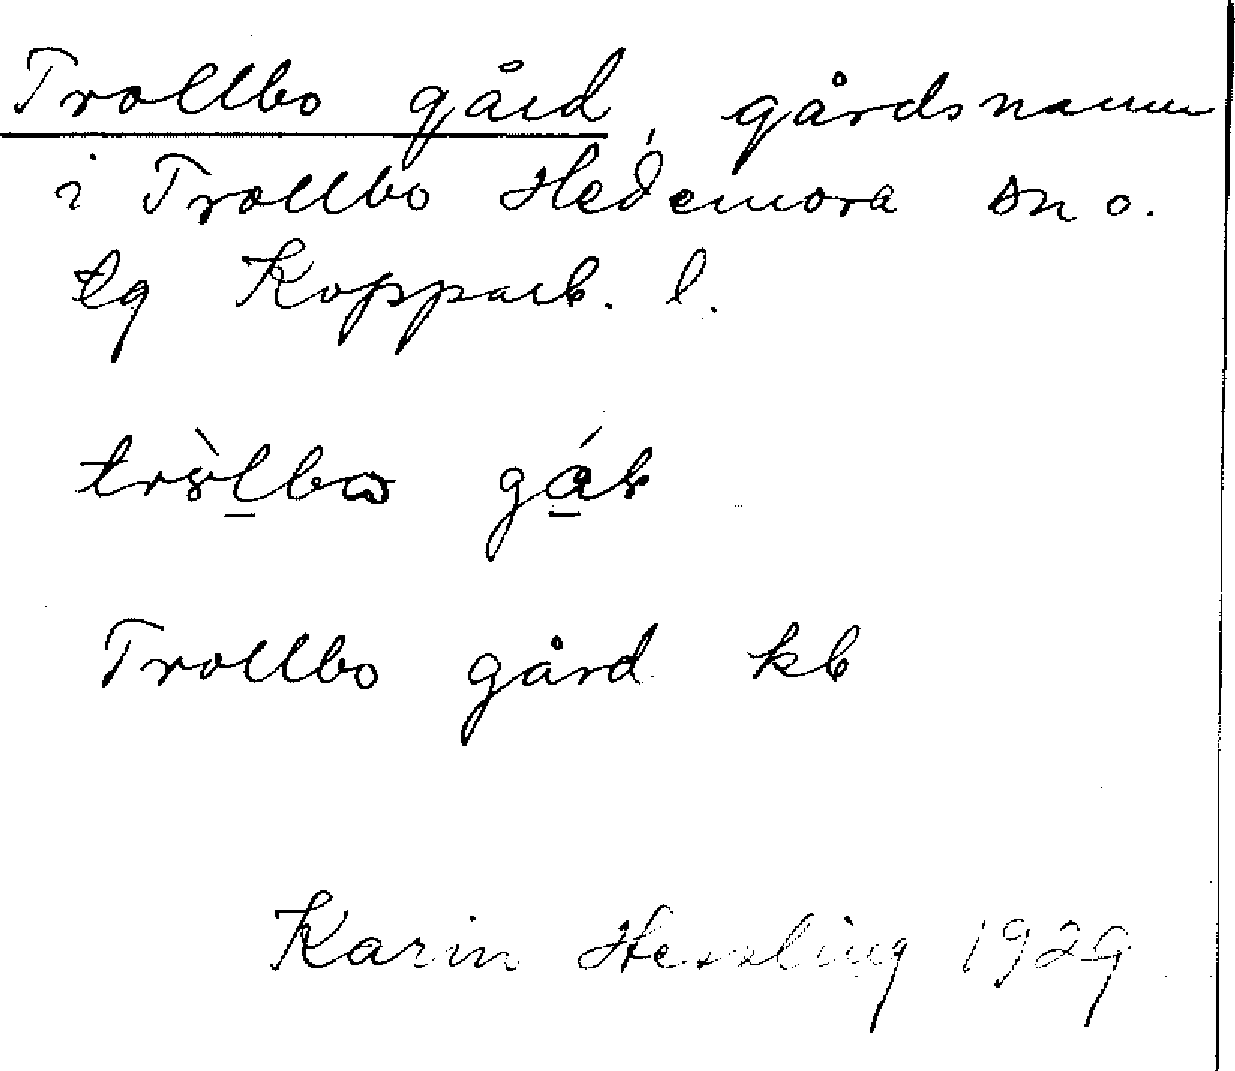 Trollbo gård, gårdsnamn
i Trollbo Hedemora sn o.
tg Kopparb. l.
gá
Trollbo gård kb
Karin Hessling 1929